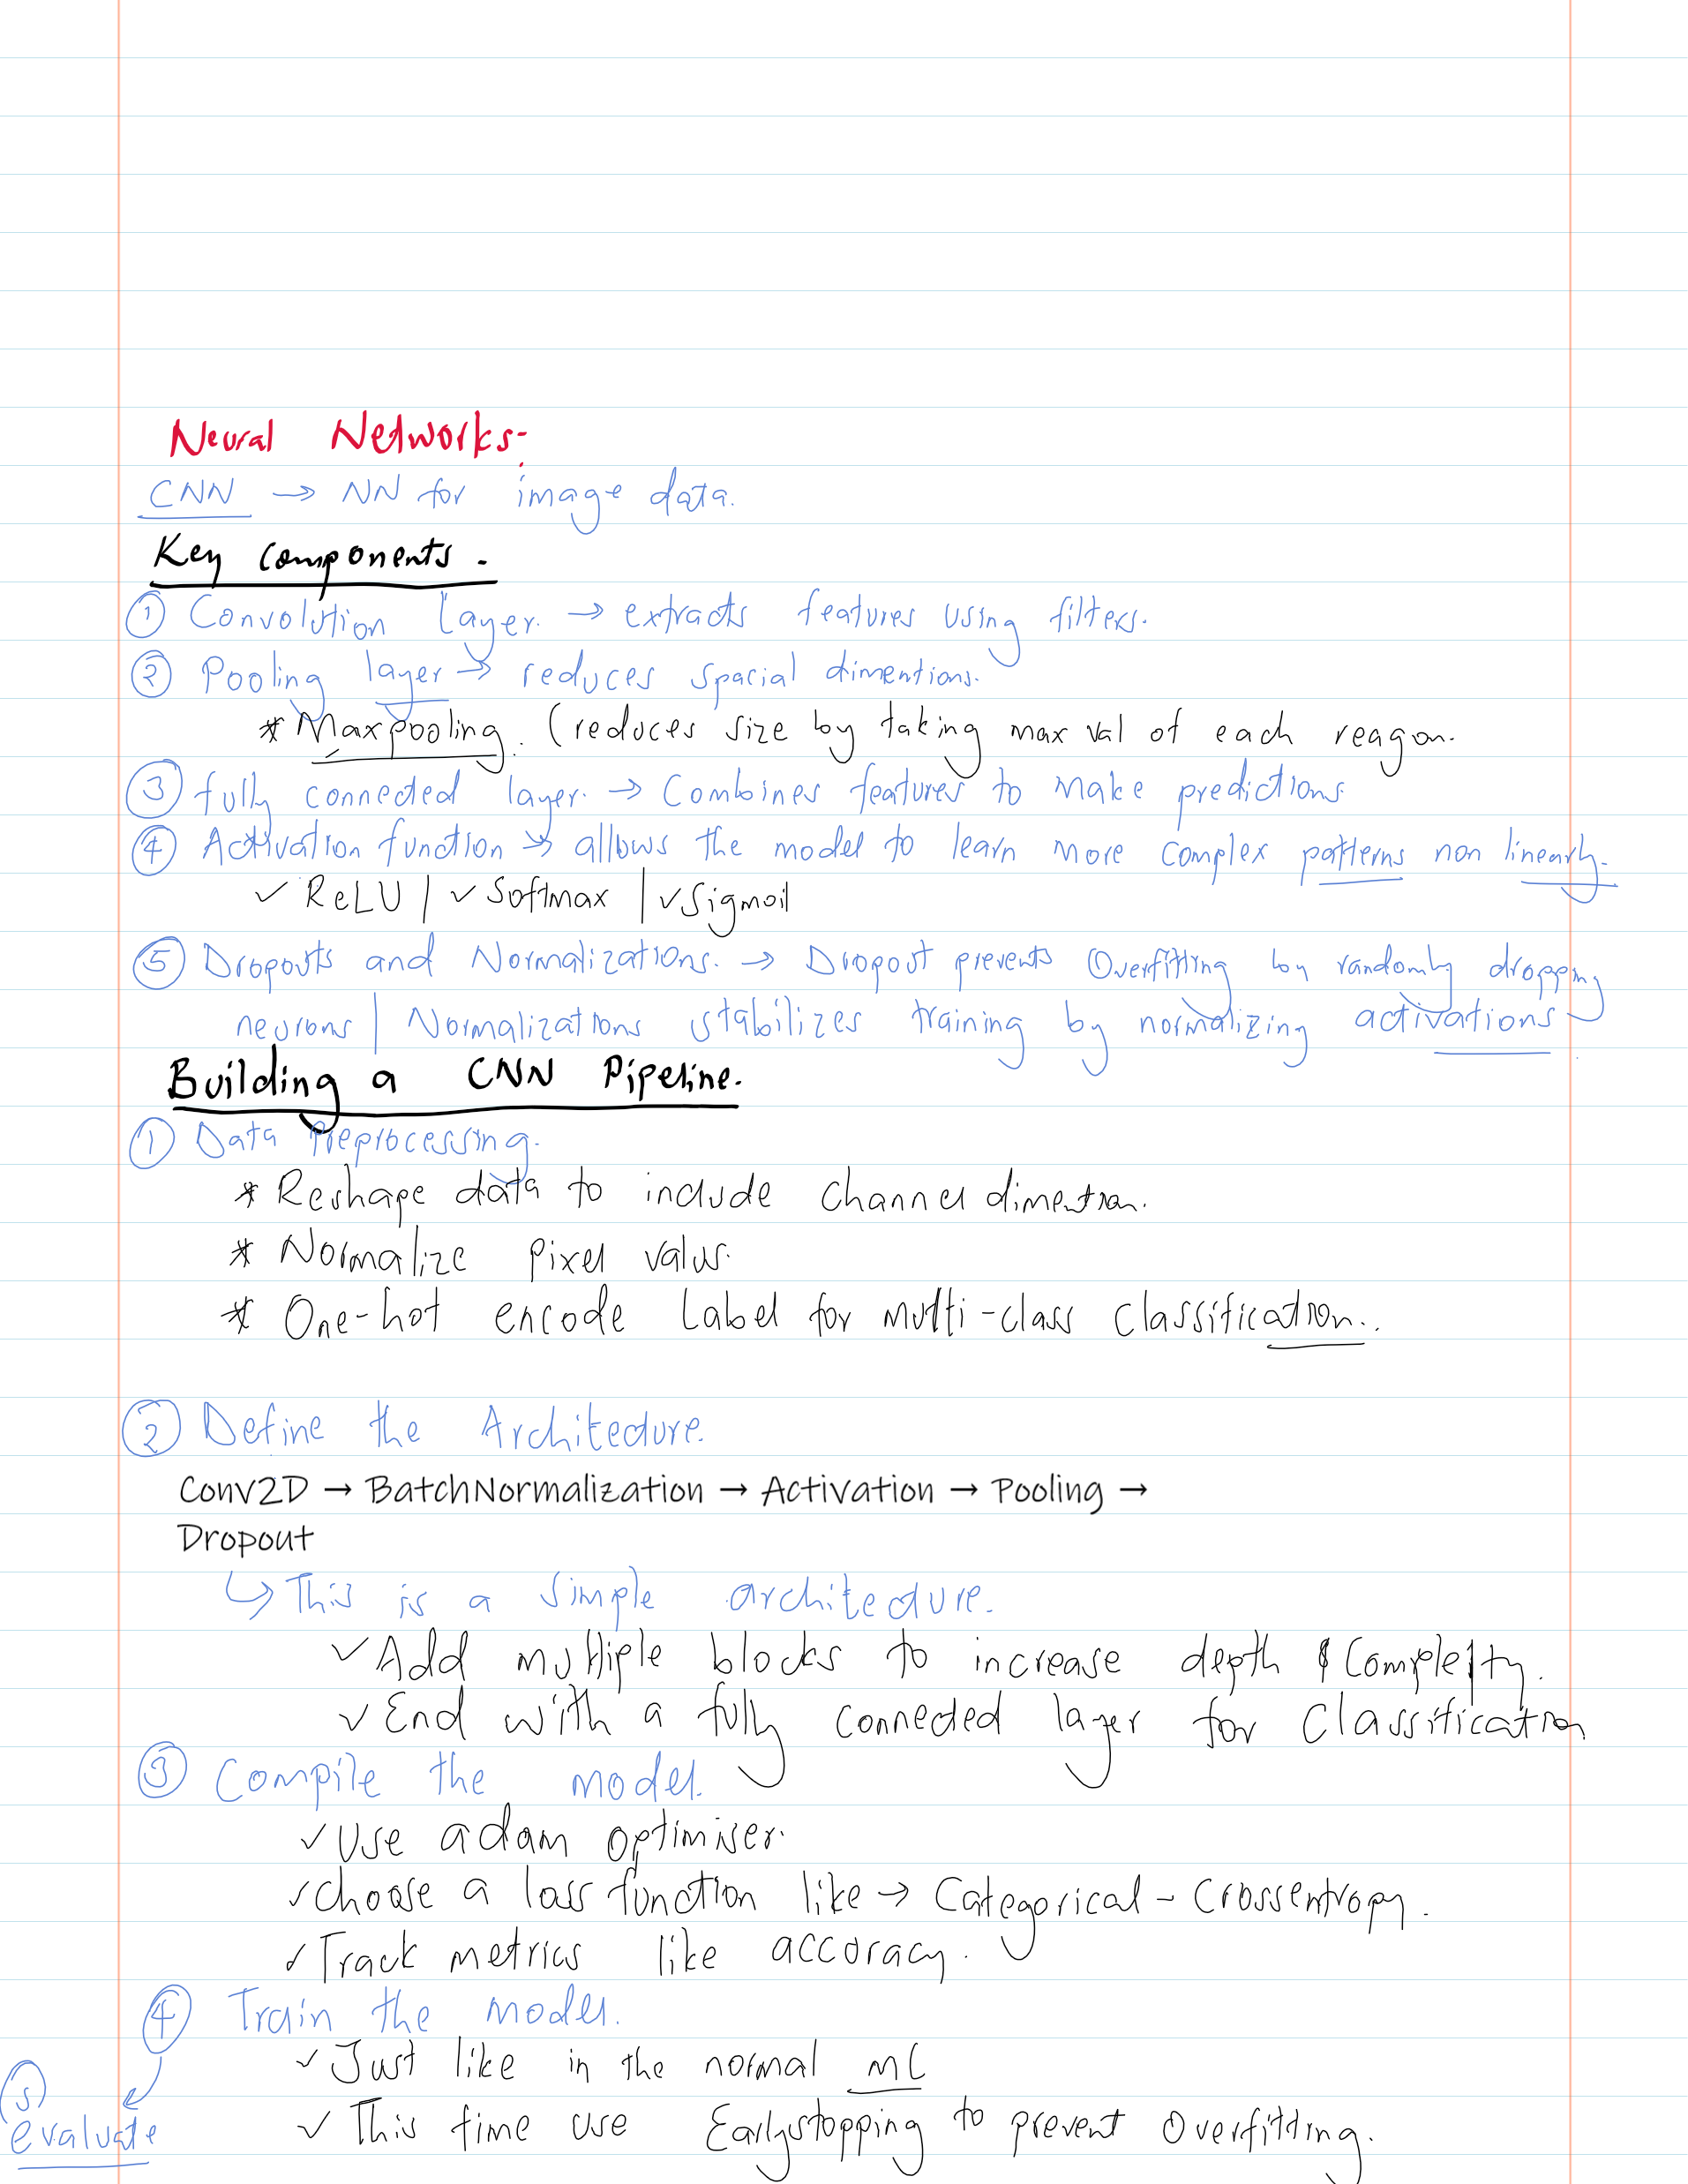 Neural Networks:-
CNN → NN for image data.
Key Components -
① Convolution Layer. → extracts features using filters.
② Pooling layer → reduces spacial dimentions.
* Maxpooling. (reduces size by taking max val of each reagon.
③ fully connected layer. → Combines features to make predictions
④ Activation function → allows the model to learn more complex patterns non linearly.
✓ ReLU | ✓ Softmax | ✓ Sigmoid
⑤ Dropouts and Normalizations. → Dropout prevents Overfitting by randomly dropping
neurons | Normalizations stabilizes training by normalizing activations
Building a CNN Pipeline.
① Data Preprocessing.
* Reshape data to include Channel dimention.
* Normalize pixel valus.
* One-hot encode Label for multi-class classification..
② Define the Architecture.
Conv2D → BatchNormalization → Activation → Pooling →
Dropout
↳ This is a simple architecture.
✓ Add multiple blocks to increase depth & Complexity.
✓ End with a fully connected layer for Classification
③ Compile the model.
✓ Use adam optimiser.
✓ choose a loss function like → Categorical - Crossentropy.
✓ Track metrics like accoracy.
④ Train the model.
✓ Just like in the normal ML
✓ This time use Earlystopping to prevent Overfitting.
⑤
evaluate